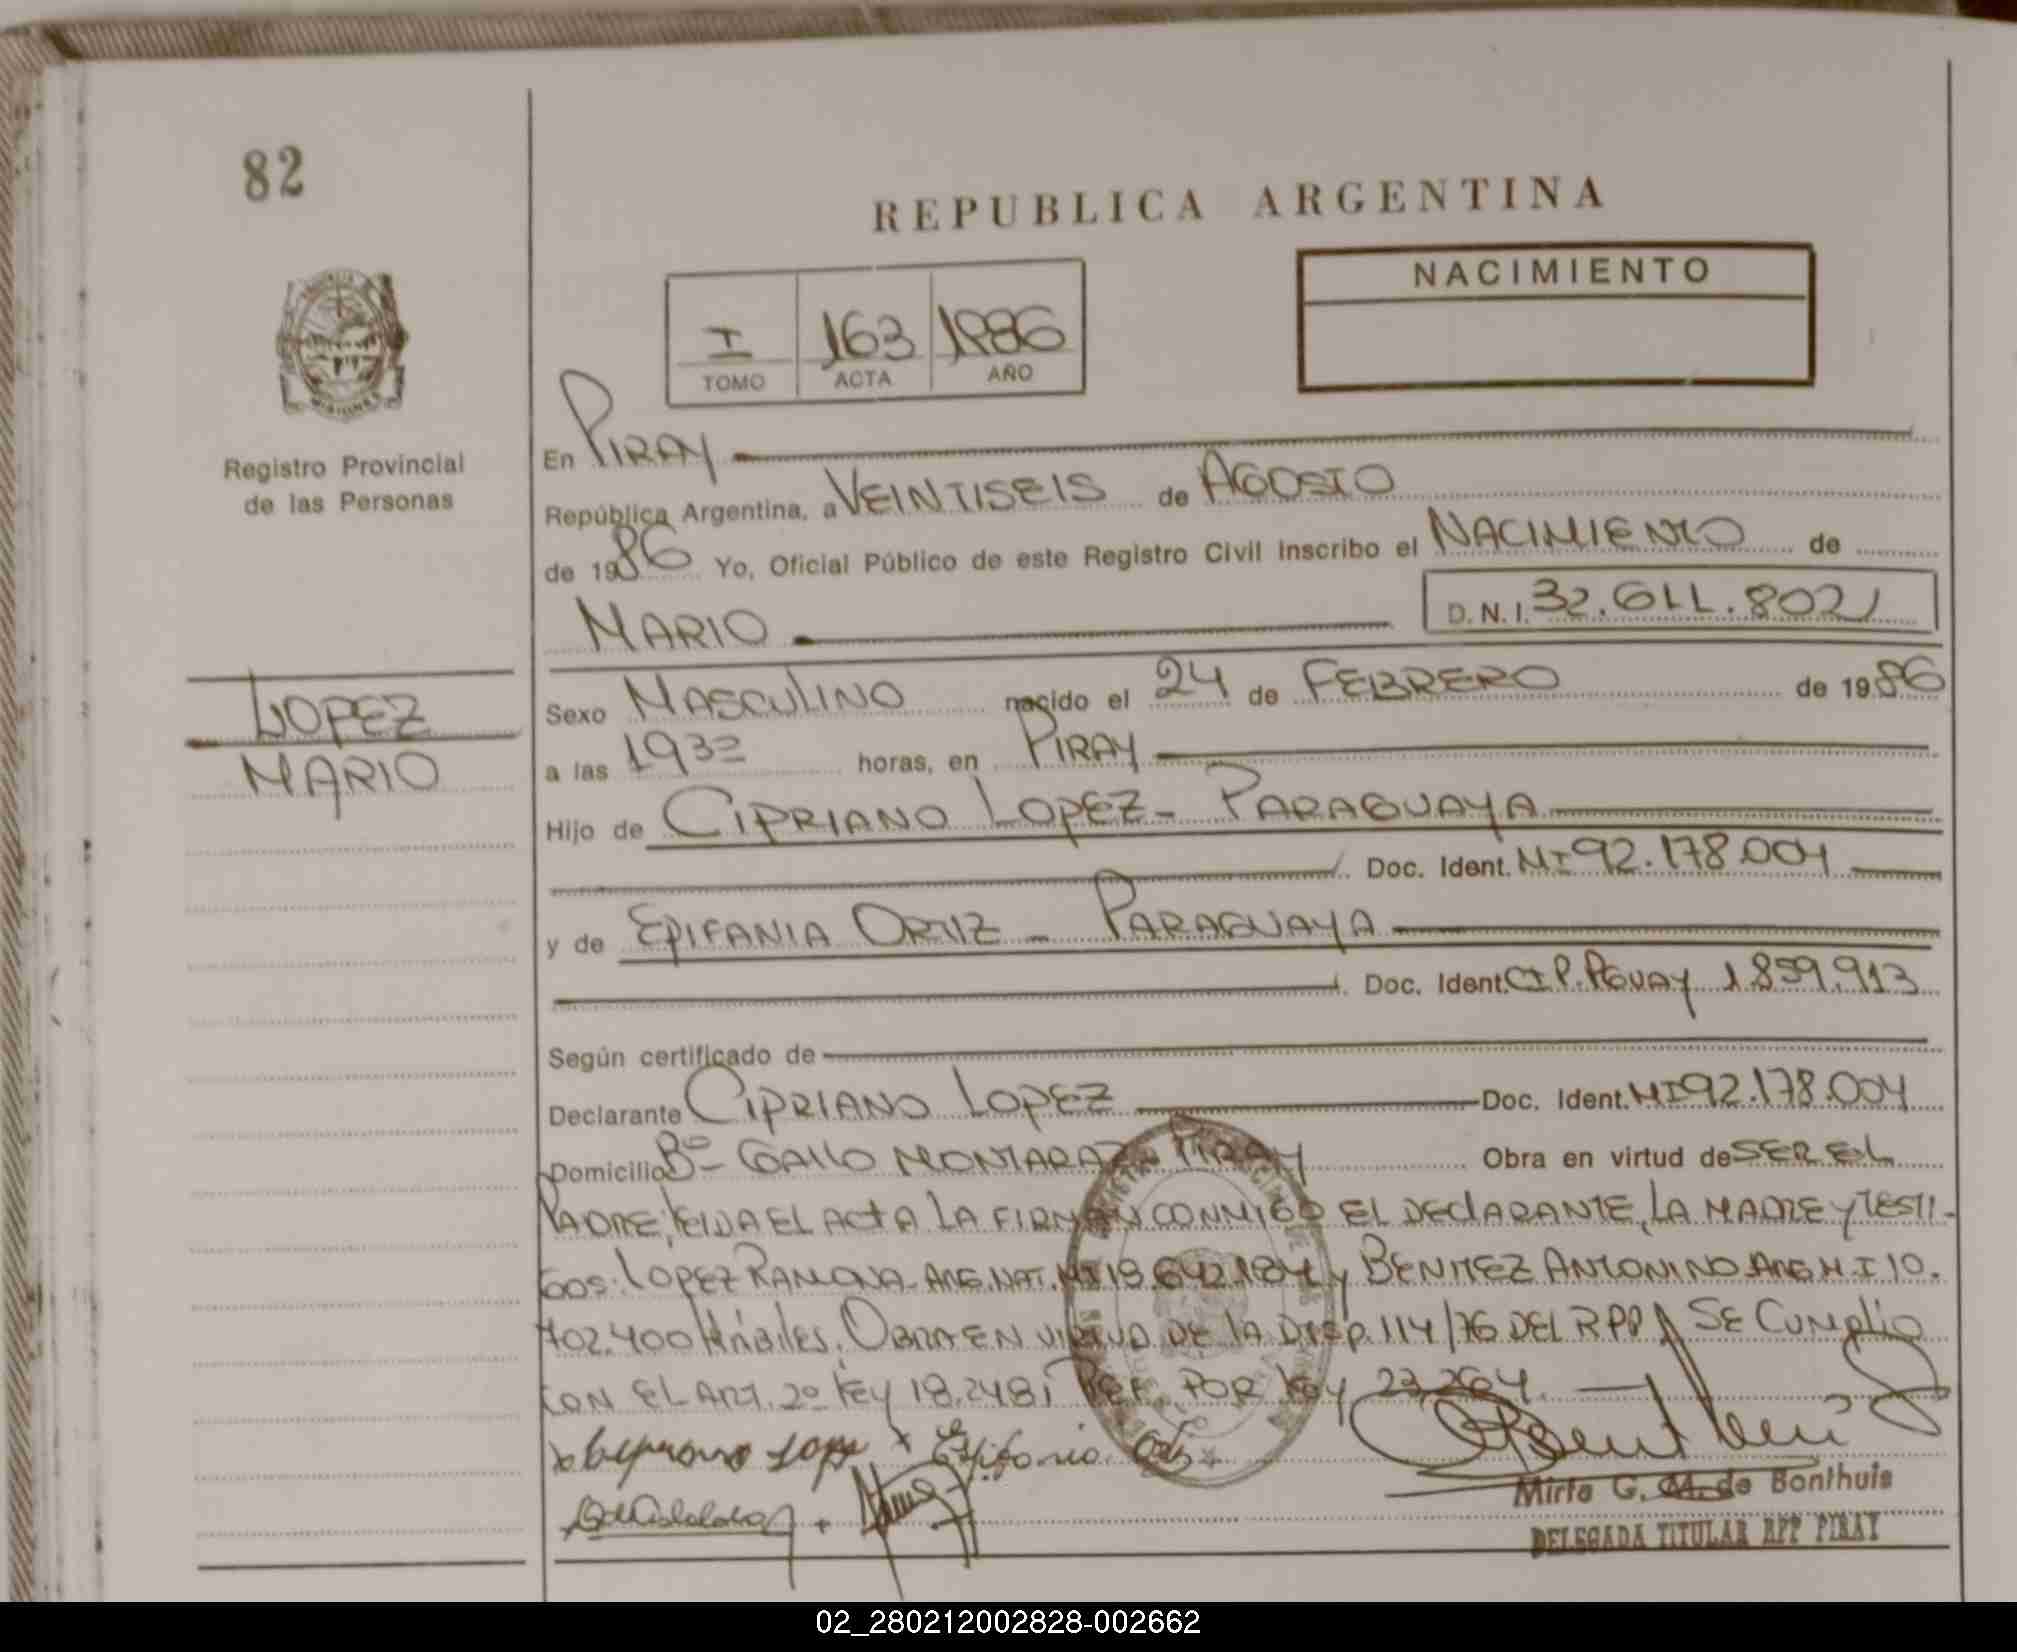 82
REPUBLICA ARGENTINA
NACIMIENTO
I 163 1986
TOMO ACTA AÑO
Registro Provincial
de las Personas
En PIRAY
República Argentina, a VEINTISEIS de AGOSTO
de 1986 Yo, Oficial Público de este Registro Civil Inscribo el NACIMIENTO de
MARIO D.N.I. 32.611.802
LOPEZ
MARIO
Sexo MASCULINO nacido el 24 de FEBRERO de 1986
a las 1930 horas, en PIRAY
Hijo de CIPRIANO LOPEZ - PARAGUAYA
Doc. Ident. MI 92.178.004
y de EPIFANIA ORTIZ - PARAGUAYA
Doc. Ident. CI P. PGUAY 1.859.913
Según certificado de
Declarante CIPRIANO LOPEZ Doc. Ident. MI 92.178.004
Domicilio Bº GALLO MONTARAZ - PIRAY Obra en virtud de SER EL
PADRE; LEIDA EL ACTA LA FIRMAN CONMIGO EL DECLARANTE, LA MADRE Y TESTI-
GOS: LOPEZ RAMONA - ARG. NAT. MI 18.642.184 y BENITEZ ANTONINO ARG M I 10.
702.400 HÁBILES. OBRA EN VIRTUD DE LA DISP. 114/76 DEL RPP SE CUMPLIO
CON EL ART. 2º LEY 18.248; REF. POR LEY 23.264.
Mirta G. M. de Bonthuis
DELEGADA TITULAR RPP PIRAY
02_280212002828-002662